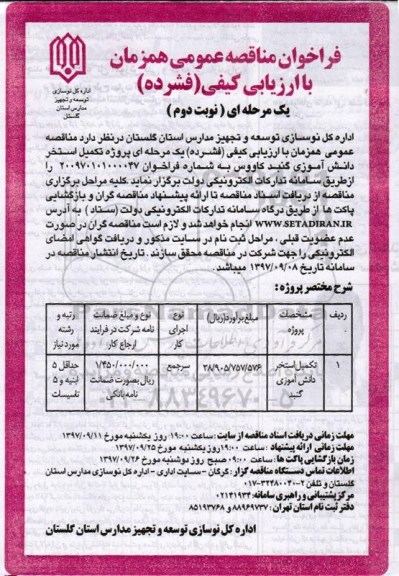 فراخوان مناقصه عمومی همزمان
با ارزیابی کیفی (فشرده)
یک مرحله ای ( نوبت دوم )
اداره کل نوسازی
توسعه و تجهیز
مدارس استان
گلستان
اداره کل نوسازی توسعه و تجهیز مدارس استان گلستان درنظر دارد مناقصه
عمومی همزمان با ارزیابی کیفی (فشرده) یک مرحله ای پروژه تکمیل استخر
دانش آموزی گنبد کاووس به شماره فراخوان ۲۰۰۹۷۰۱۰۱۰۰۰۰۳۷ را
ازطریق سامانه تدارکات الکترونیکی دولت برگزار نماید.کلیه مراحل برگزاری
مناقصه از دریافت اسناد مناقصه تا ارائه پیشنهاد مناقصه گران و بازگشایی
پاکت ها از طریق درگاه سامانه تدارکات الکترونیکی دولت (ستاد) به آدرس
WWW.SETADIRAN.IR انجام خواهد شد و لازم است مناقصه گران در صورت
عدم عضویت قبلی ، مراحل ثبت نام در سایت مذکور و دریافت گواهی امضای
الکترونیکی را جهت شرکت در مناقصه محقق سازند . تاریخ انتشار مناقصه در
سامانه تاریخ ۱۳۹۷/۰۹/۰۸ میباشد.
شرح مختصر پروژه :
ردیف مشخصات پروژه مبلغ برآورد(ریال) نوع اجرای کار نوع و مبلغ ضمانت نامه شرکت در فرایند ارجاع کار رتبه و رشته مورد نیاز
۱ تکمیل استخر دانش آموزی گنبد ۲۸/۹۰۵/۷۵۷/۵۷۶ سرجمع ۱/۴۵۰/۰۰۰/۰۰۰ ریال بصورت ضمانت نامه بانکی حداقل ۵ ابنیه و ۵ تاسیسات
مهلت زمانی دریافت اسناد مناقصه از سایت : ساعت ۱۹:۰۰ روز یکشنبه مورخ ۱۳۹۷/۰۹/۱۱
مهلت زمانی ارائه پیشنهاد : ساعت ۱۹:۰۰ روز یکشنبه مورخ ۱۳۹۷/۰۹/۲۵
زمان بازگشایی پاکت ها : ساعت ۰۹:۰۰ صبح روز دوشنبه مورخ ۱۳۹۷/۰۹/۲۶
اطلاعات تماس دستگاه مناقصه گزار : گرگان - سایت اداری - اداره کل نوسازی مدارس استان
گلستان و تلفن ۲-۳۲۴۸۰۰۴۰-۰۱۷
مرکز پشتیبانی و راهبری سامانه: ۰۲۱۴۱۹۳۴
دفتر ثبت نام استان تهران : ۸۸۹۶۹۷۳۷ و ۸۵۱۹۳۷۶۸
اداره کل نوسازی توسعه و تجهیز مدارس استان گلستان